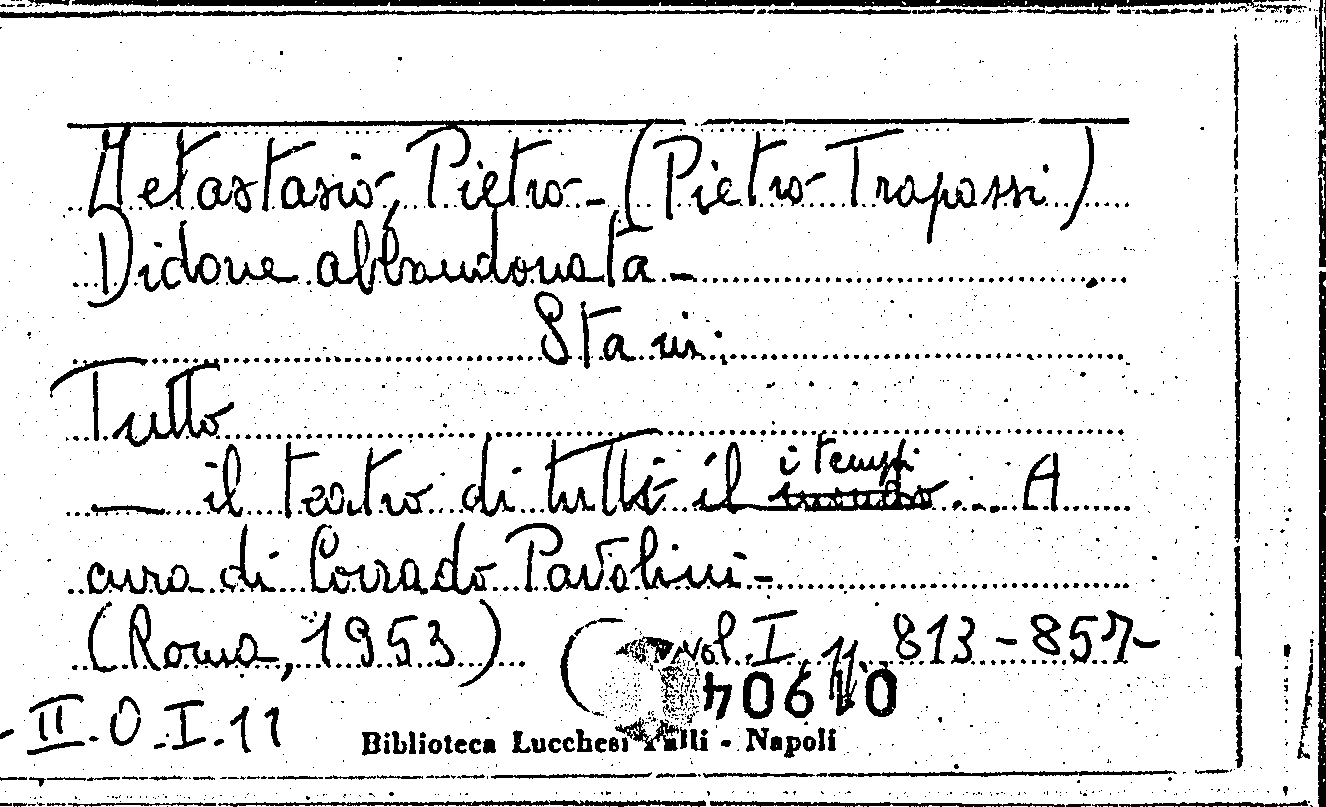 Metastasio, Pietro - (Pietro Trapassi)
Didone abbandonata -
Sta in:
Tutto
— il teatro di tutti il i tempi mondo... A
cura di Corrado Pavolini -
(Roma, 1953) (vol. I, pp. 813-857-
II.O.I.11
Biblioteca Lucchesi Palli - Napoli